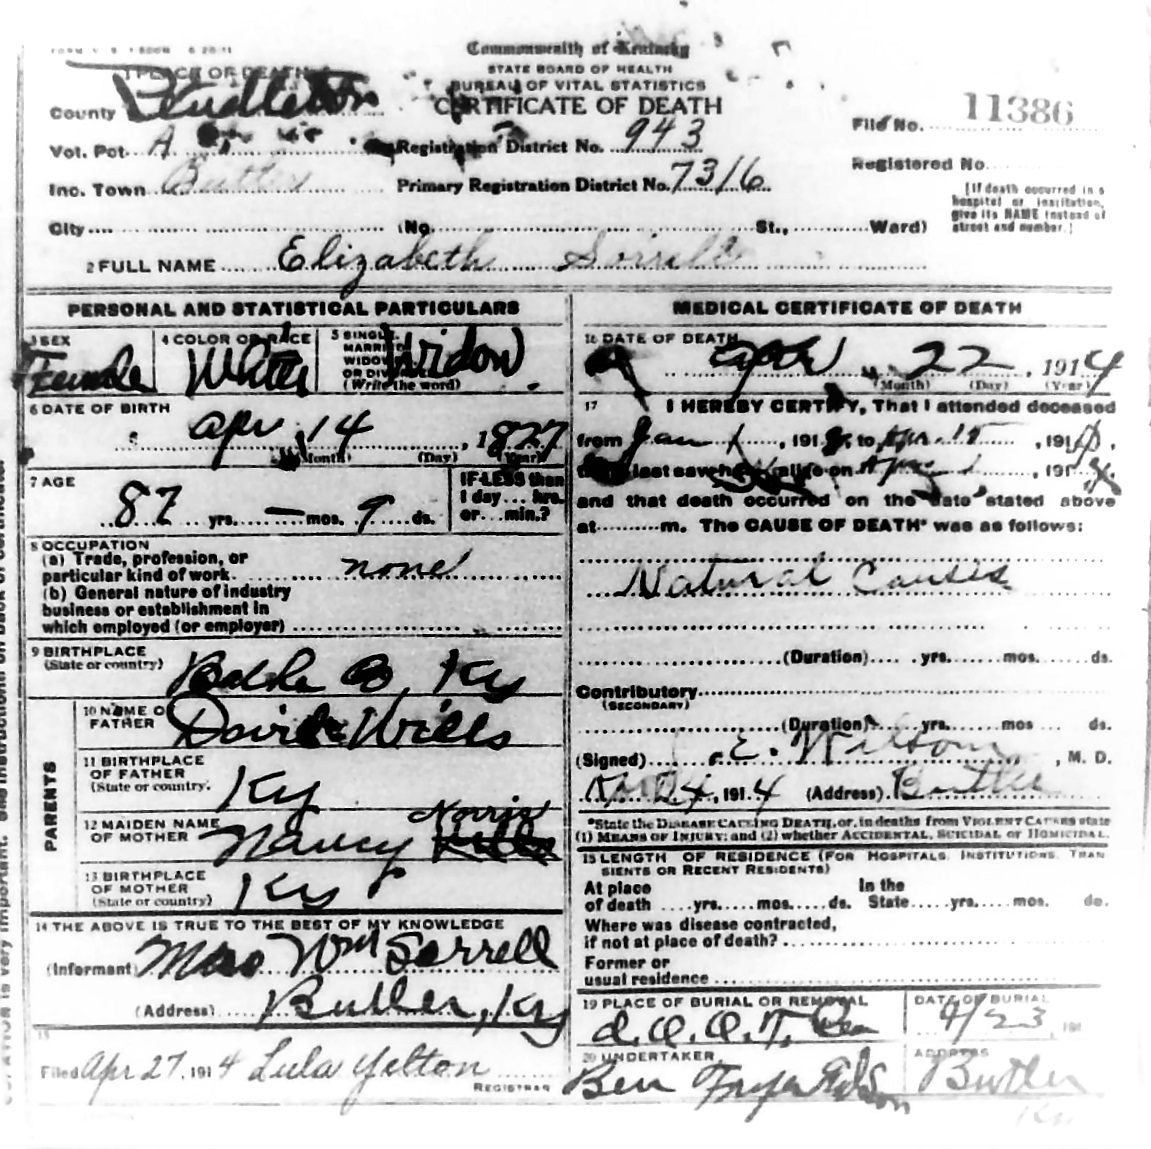 FORM V. S. 1 500M 6 20 11
Commonwealth of Kentucky
STATE BOARD OF HEALTH
BUREAU OF VITAL STATISTICS
CERTIFICATE OF DEATH
1 PLACE OF DEATH
County Pendleton
Vot. Pct. A
Registration District No. 943
File No. 11386
Inc. Town Butler
Primary Registration District No. 7316
Registered No.
[If death occurred in a hospital or institution, give its NAME instead of street and number.]
City (No. St., Ward)
2 FULL NAME Elizabeth Sorrell
PERSONAL AND STATISTICAL PARTICULARS
3 SEX Female
4 COLOR OR RACE White
5 SINGLE, MARRIED, WIDOWED OR DIVORCED (Write the word) Widow.
6 DATE OF BIRTH
Apr 14, 1827
(Month) (Day) (Year)
7 AGE
87 yrs. — mos. 9 ds.
IF LESS than 1 day... hrs. or... min.?
8 OCCUPATION
(a) Trade, profession, or
particular kind of work. none
(b) General nature of industry
business or establishment in
which employed (or employer)
9 BIRTHPLACE
(State or country) Ky
PARENTS
10 NAME OF FATHER David Wills
11 BIRTHPLACE OF FATHER (State or country) Ky
12 MAIDEN NAME OF MOTHER Nancy Norris
13 BIRTHPLACE OF MOTHER (State or country) Ky
14 THE ABOVE IS TRUE TO THE BEST OF MY KNOWLEDGE
(Informant) Mrs Wm Sorrell
(Address) Butler, Ky
15
Filed Apr 27, 1914 Lula Yelton
REGISTRAR
MEDICAL CERTIFICATE OF DEATH
16 DATE OF DEATH
Apr 22, 1914
(Month) (Day) (Year)
17 I HEREBY CERTIFY, That I attended deceased
from Jan 1, 191 to Apr. 15, 191
that I last saw h alive on 191
and that death occurred on the date stated above
at m. The CAUSE OF DEATH* was as follows:
Natural Causes
(Duration) yrs. mos. ds.
Contributory
(SECONDARY)
(Duration) yrs. mos ds.
(Signed) E. Wilson, M. D.
24, 1914 (Address) Butler
*State the DISEASE CAUSING DEATH, or, in deaths from VIOLENT CAUSES state
(1) MEANS OF INJURY; and (2) whether ACCIDENTAL, SUICIDAL or HOMICIDAL.
18 LENGTH OF RESIDENCE (FOR HOSPITALS, INSTITUTIONS, TRANSIENTS OR RECENT RESIDENTS)
At place of death yrs. mos. ds. In the State yrs. mos. ds.
Where was disease contracted,
if not at place of death?
Former or
usual residence
19 PLACE OF BURIAL OR REMOVAL
DATE OF BURIAL
I. O. O. F.
4/23, 191
20 UNDERTAKER
ADDRESS
Ben
Butler
Ky